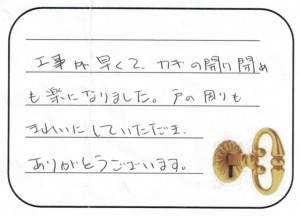 工事が早くて、カギの開け閉め
も楽になりました。戸の周りも
きれいにしていただき、
ありがとうございます。